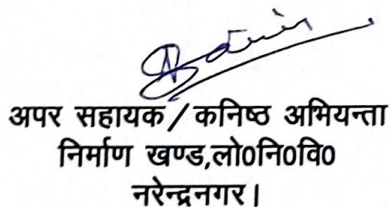 अपर सहायक/कनिष्ठ अभियन्ता
निर्माण खण्ड,लो0नि0वि0
नरेन्द्रनगर।